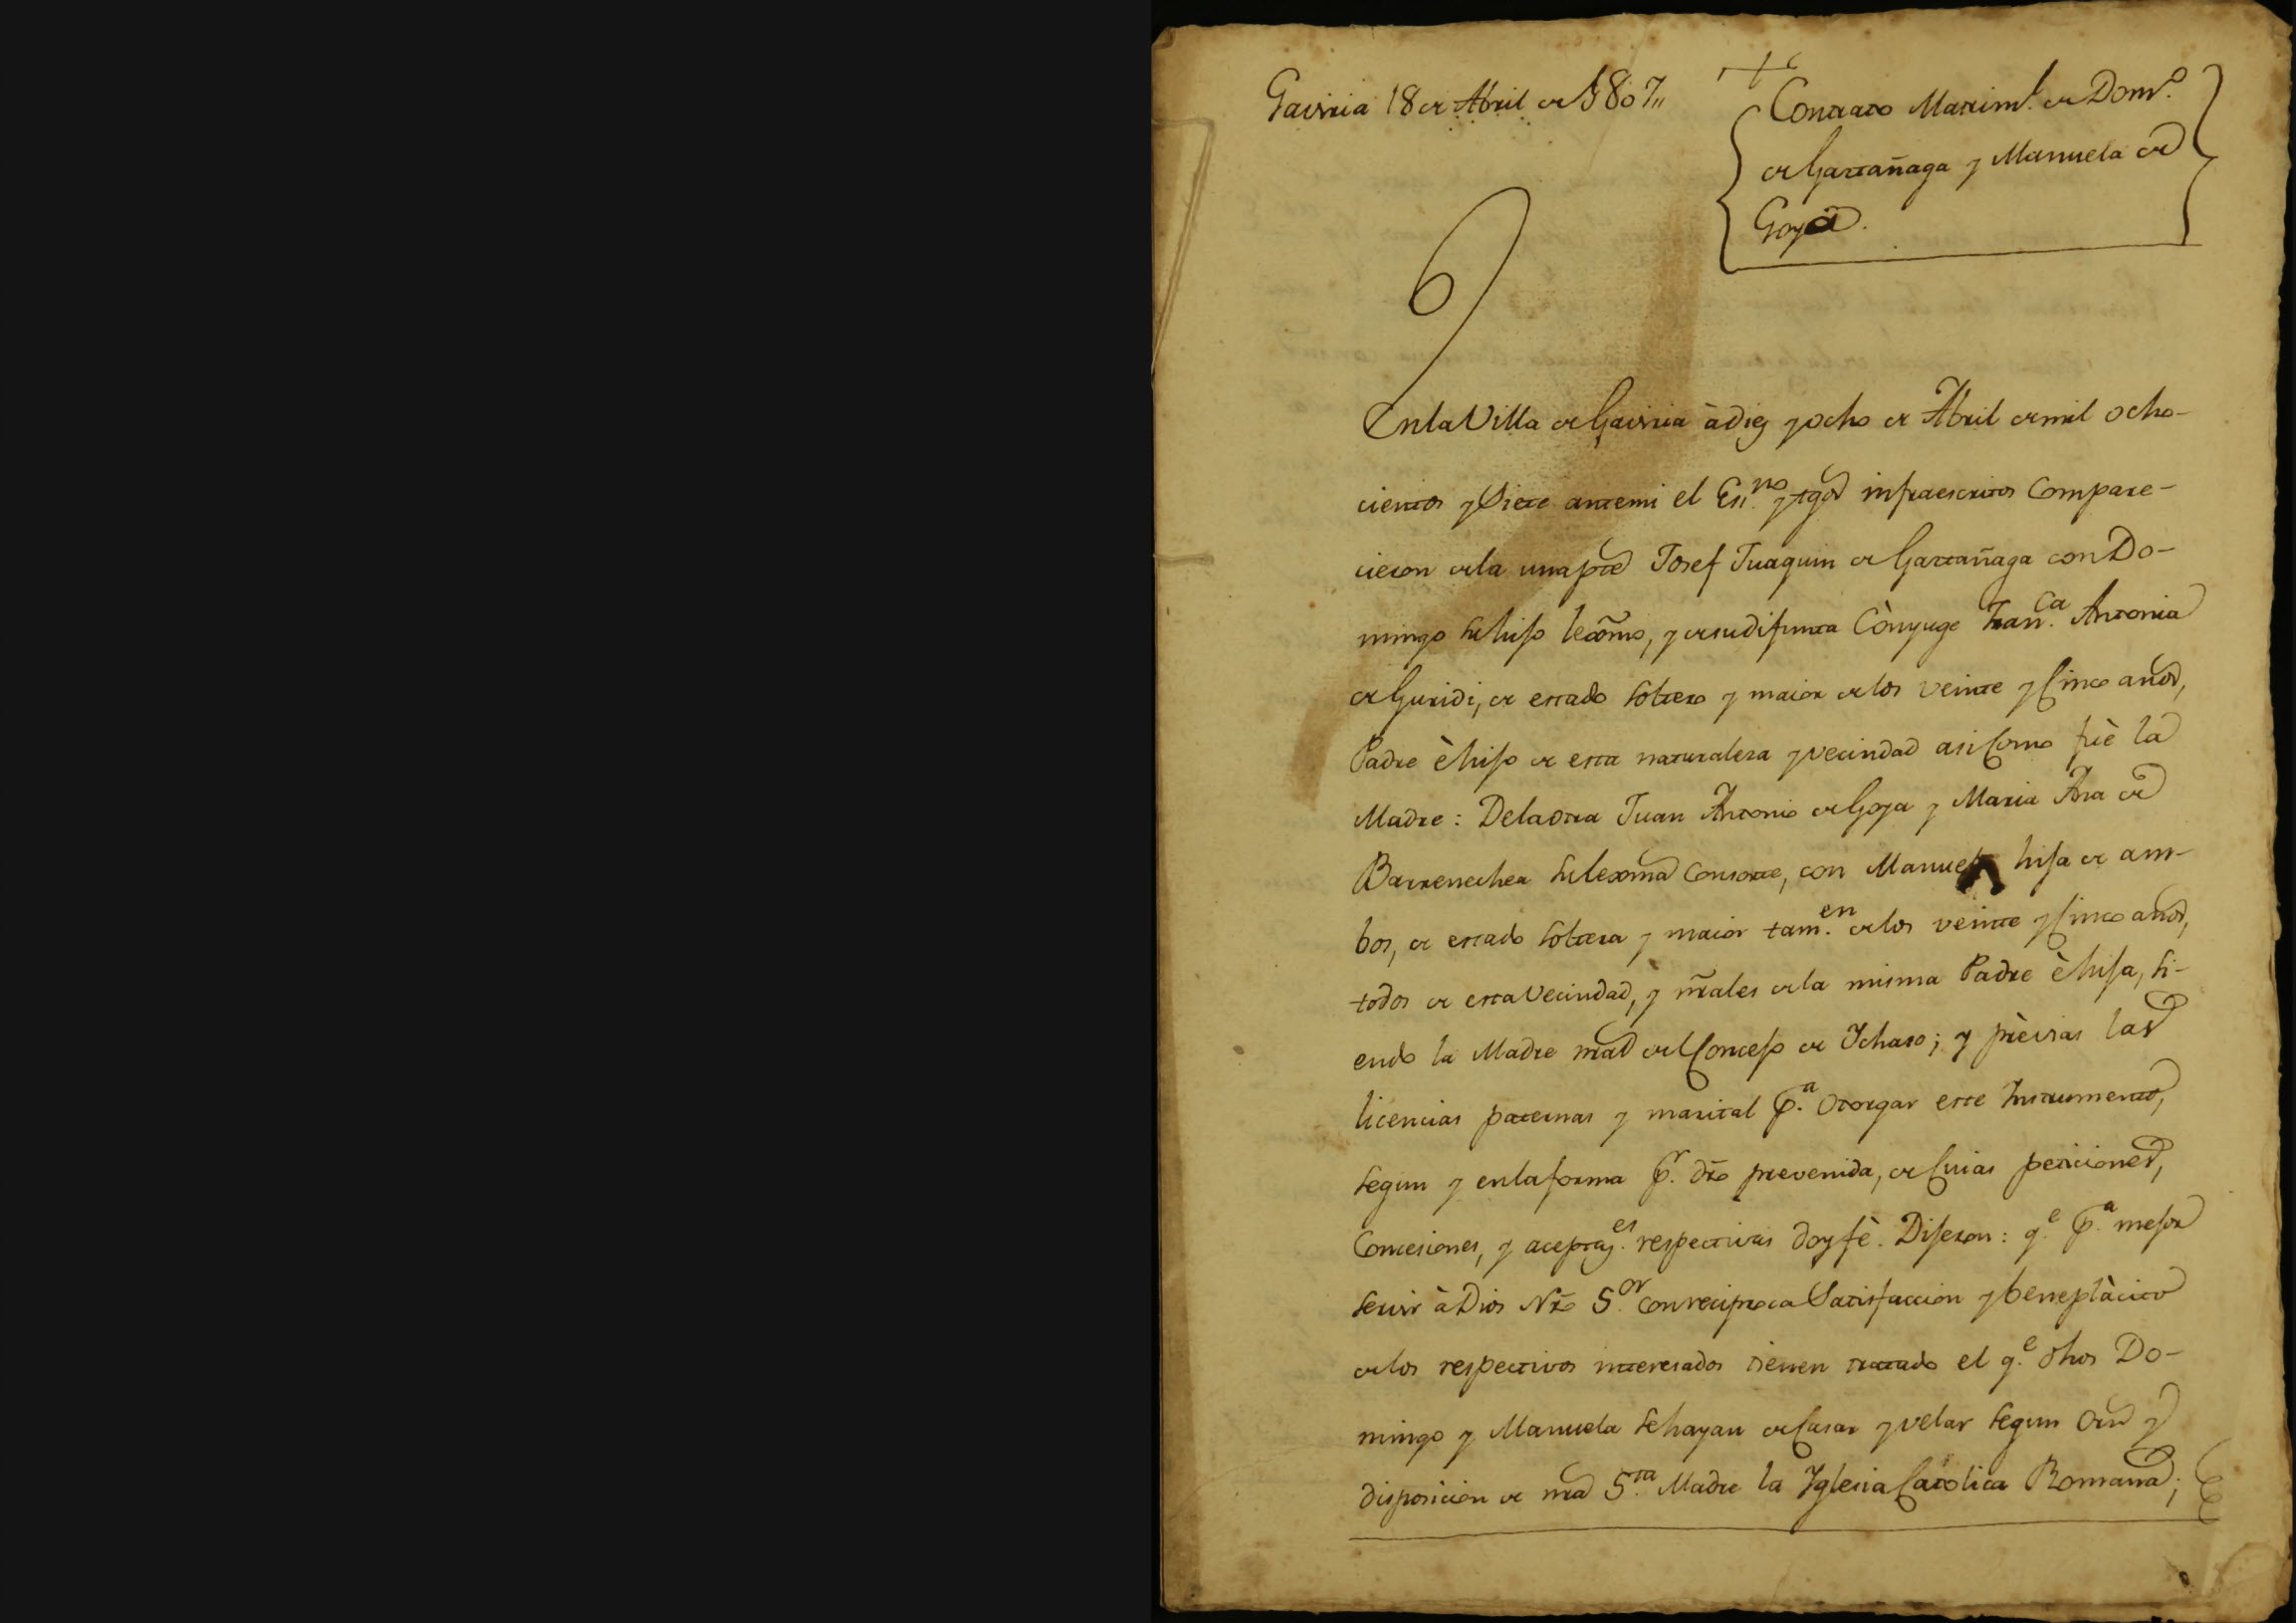 Gaviria 18 de Abril de 1807,,
Contrato Matrim.l de Dom.o
de Gartañaga y Manuela de
Goya.
En la Villa de Gaviria à diez y ocho de Abril de mil ocho-
cientos y Siete ante mi el Es.no y tgos infraescritos Compare-
cieron de la una pte Josef Juaquin de Gartañaga con Do-
mingo su hijo lexmo, y de su difunta Cònyuge Fran.ca Antonia
de Guridi, de estado soltero y maior de los veinte y Cinco años,
Padre è hijo de esta naturaleza y vecindad asi Como fuè la
Madre: De la otra Juan Antonio de Goya y Maria Ana de
Barrenechea su lexma Consorte, con Manuela hija de am-
bos, de estado soltera y maior tam.en de los veinte y Cinco años,
todos de esta Vecindad, y nrales de la misma Padre è hija, si-
endo la Madre nral del Concejo de Ychaso; y prèvias las
licencias paternas y marital p.a otorgar este Instrumento,
segun y en la forma p.r dro prevenida, de Cuias peticiones,
Concesiones, y aceptaz.es respectivas doy fè. Dijeron: q.e p.a mejor
servir à Dios Nro S.or con reciproca Satisfaccion y beneplàcito
de los respectivos interesados tienen tratado el q.e dhos Do-
mingo y Manuela se hayan de Casar y velar segun orn y
disposicion de nra S.ta Madre la Yglesia Catolica Romana;